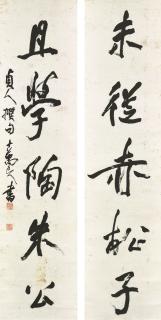 未從赤松子
且學陶朱公
貞人撰句
書